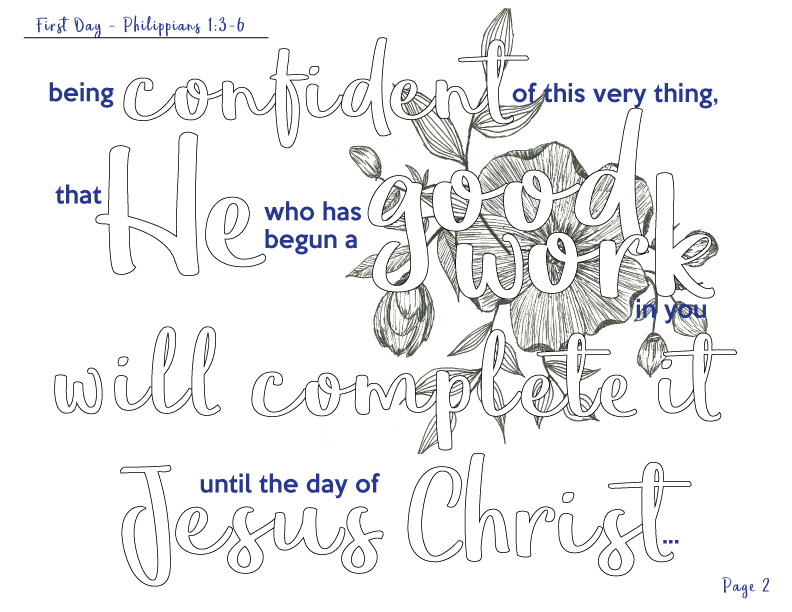 First Day - Philippians 1:3-6
being confident of this very thing,
that He who has
begun a good
work
in you
will complete it
until the day of
Jesus Christ...
Page 2